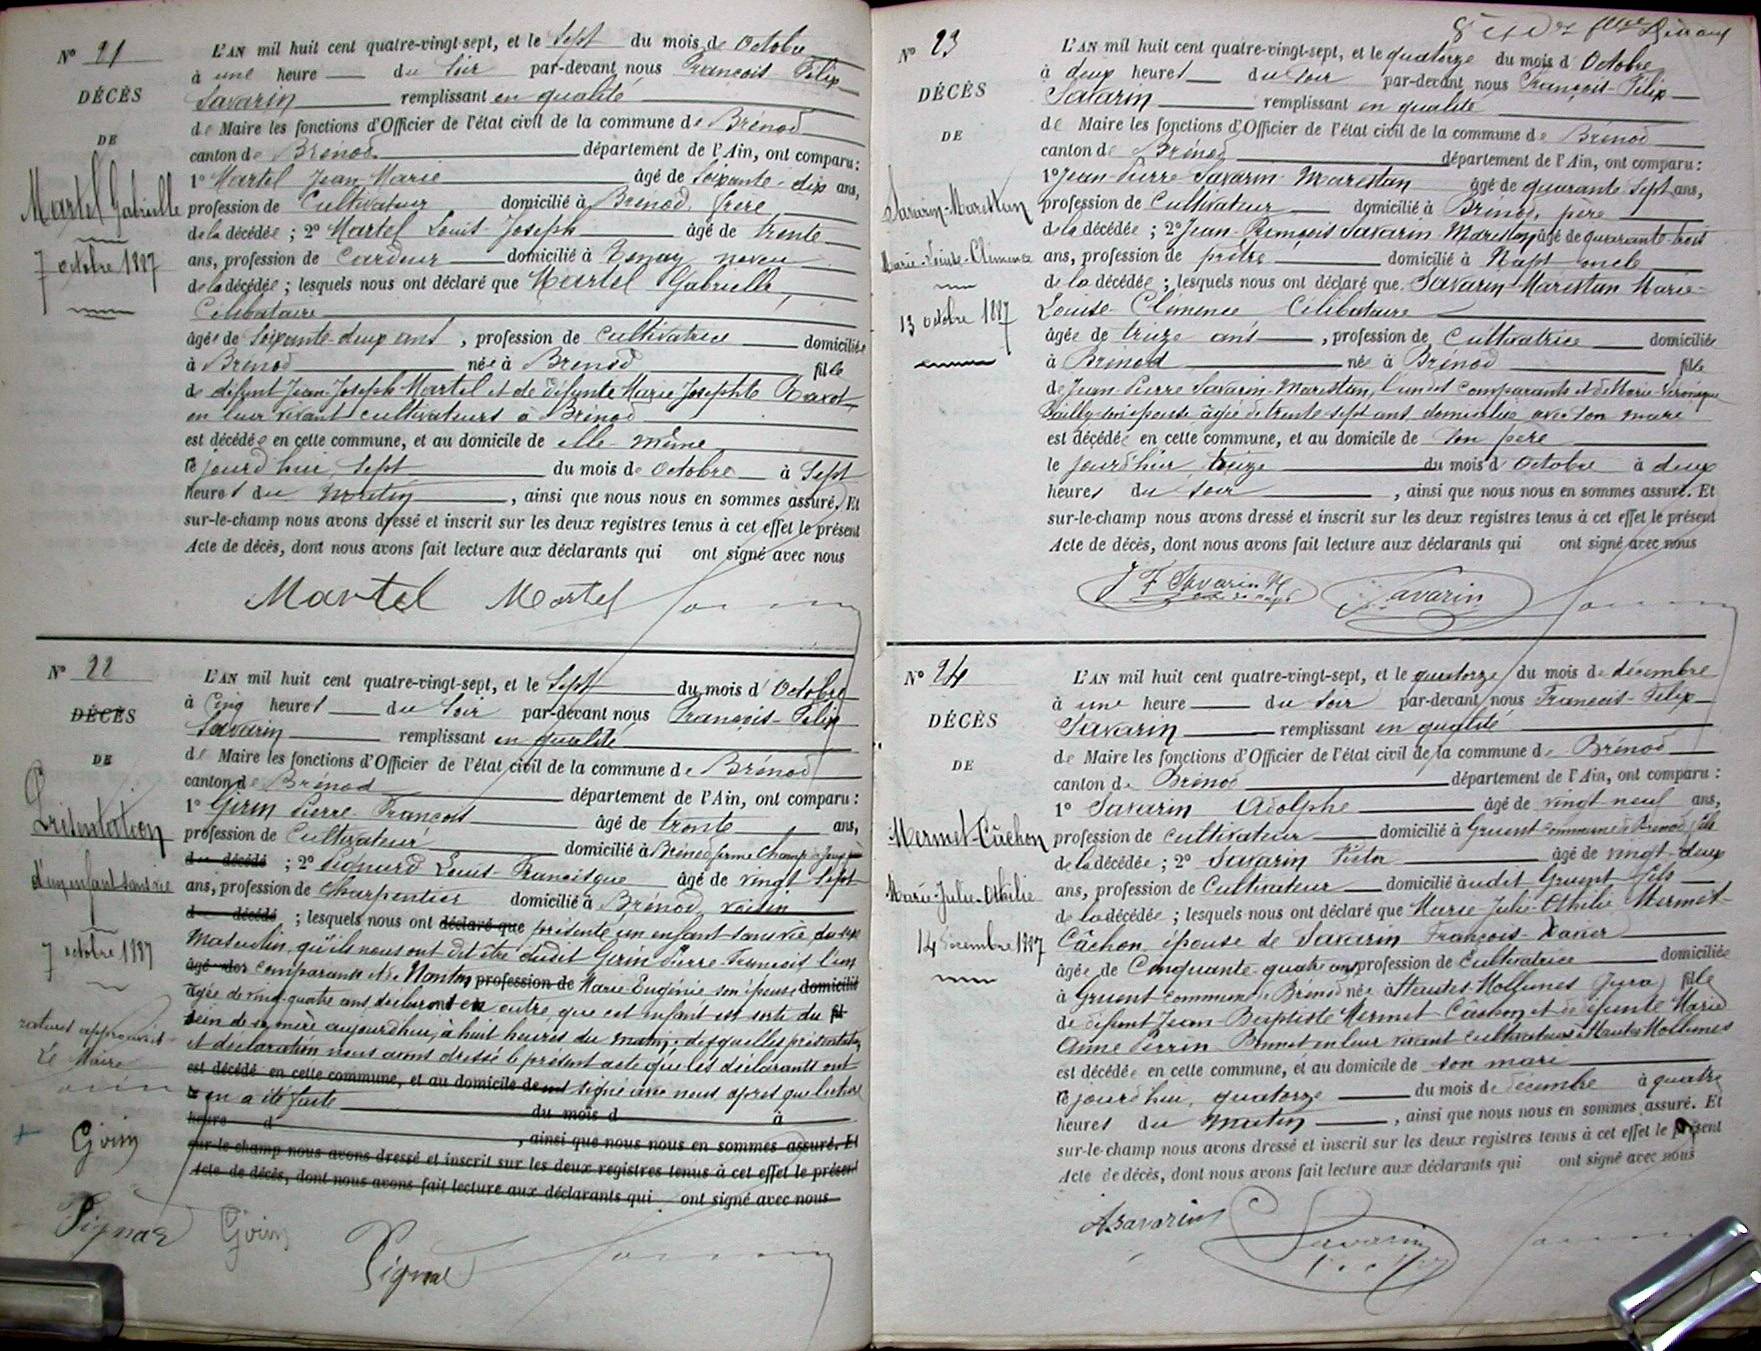 Nº 21
DÉCÈS
DE
Martel Gabrielle
7 octobre 1887
L'AN mil huit cent quatre-vingt-sept, et le Sept du mois de Octobre
à une heure du Soir par-devant nous François-Félix
Savarin remplissant en qualité
de Maire les fonctions d'Officier de l'état civil de la commune de Brénod
canton de Brénod département de l'Ain, ont comparu :
1º Martel Jean Marie âgé de Soixante-dix ans,
profession de Cultivateur domicilié à Brénod, frère
de la décédée ; 2º Martel Louis-Joseph âgé de trente
ans, profession de Cardeur domicilié à Tenay neveu
de la décédée ; lesquels nous ont déclaré que Martel Gabrielle,
Célibataire
âgée de Soixante-deux ans, profession de Cultivatrice domiciliée
à Brénod née à Brénod fille
de défunt Jean-Joseph Martel et de défunte Marie Josephte
en leur vivant cultivateurs à Brénod
est décédée en cette commune, et au domicile de elle-même
le jourd'hui Sept du mois de Octobre à Sept
heures du matin, ainsi que nous nous en sommes assuré. Et
sur-le-champ nous avons dressé et inscrit sur les deux registres tenus à cet effet le présent
Acte de décès, dont nous avons fait lecture aux déclarants qui ont signé avec nous
Martel Martel Savarin
Nº 22
DÉCÈS
DE
Présentation
d'un enfant sans vie
7 octobre 1887
ratures approuvées
Le Maire
Savarin
Girin
Pignard
L'AN mil huit cent quatre-vingt-sept, et le Sept du mois d'Octobre
à Cinq heures du Soir par-devant nous François-Félix
Savarin remplissant en qualité
de Maire les fonctions d'Officier de l'état civil de la commune de Brénod
canton de Brénod département de l'Ain, ont comparu :
1º Girin Pierre-François âgé de trente ans,
profession de Cultivateur domicilié à Brénod ferme Champ
du décédé ; 2º Pignard Louis-Francisque âgé de vingt-sept
ans, profession de Charpentier domicilié à Brénod, voisin
de décédé ; lesquels nous ont déclaré que présenté un enfant sans vie, du sexe
masculin, qu'ils nous ont dit être dudit Girin Pierre-François l'un
âgé des comparants et de Monton profession de Marie Eugénie son épouse domicilié
âgée de vingt-quatre ans déclarent en outre que cet enfant est sorti du fil
sein de sa mère aujourd'hui, à huit heures du matin, desquelles présentation
et déclaration nous avons dressé le présent acte que les déclarants ont
est décédé en cette commune, et au domicile de signé avec nous après que lecture
le en a été faite du mois d à
heure d
, ainsi que nous nous en sommes assuré. Et
sur-le-champ nous avons dressé et inscrit sur les deux registres tenus à cet effet le présent
Acte de décès, dont nous avons fait lecture aux déclarants qui ont signé avec nous
Girin Pignard Savarin
Nº 23
DÉCÈS
DE
Savarin-Marestan
Marie-Louise-Clémence
13 octobre 1887
L'AN mil huit cent quatre-vingt-sept, et le quatorze du mois d'Octobre
à deux heures du Soir par-devant nous François-Félix
Savarin remplissant en qualité
de Maire les fonctions d'Officier de l'état civil de la commune de Brénod
canton de Brénod département de l'Ain, ont comparu :
1º Jean-Pierre Savarin-Marestan âgé de quarante-sept ans,
profession de Cultivateur domicilié à Brénod, père
de la décédée ; 2º Jean-François Savarin-Marestan, âgé de quarante-trois
ans, profession de prêtre domicilié à Napt oncle
de la décédée ; lesquels nous ont déclaré que Savarin-Marestan Marie-
Louise-Clémence Célibataire
âgée de treize ans, profession de Cultivatrice domiciliée
à Brénod née à Brénod fille
de Jean-Pierre Savarin-Marestan, l'un des comparants et de Marie-Véronique
épouse âgée de trente-sept ans domiciliée avec son mari
est décédée en cette commune, et au domicile de son père
le jourd'hier treize du mois d'Octobre à deux
heures du soir, ainsi que nous nous en sommes assuré. Et
sur-le-champ nous avons dressé et inscrit sur les deux registres tenus à cet effet le présent
Acte de décès, dont nous avons fait lecture aux déclarants qui ont signé avec nous
J F Savarin M Savarin Savarin
Nº 24
DÉCÈS
DE
Mermet-Câchon
Marie-Julie-Othilie
14 Décembre 1887
L'AN mil huit cent quatre-vingt-sept, et le quatorze du mois de décembre
à une heure du Soir par-devant nous François-Félix
Savarin remplissant en qualité
de Maire les fonctions d'Officier de l'état civil de la commune de Brénod
canton de Brénod département de l'Ain, ont comparu :
1º Savarin Adolphe âgé de vingt-neuf ans,
profession de cultivateur domicilié à Gruent commune de Brénod fils
de la décédée ; 2º Savarin Victor âgé de vingt-deux
ans, profession de Cultivateur domicilié audit Gruent fils
de la décédée ; lesquels nous ont déclaré que Marie-Julie-Othilie Mermet-
Câchon, épouse de Savarin François-Xavier
âgée de Cinquante-quatre ans, profession de Cultivatrice domiciliée
à Gruent commune de Brénod née à Hautes-Mollunes (Jura) fille
de défunt Jean-Baptiste Mermet-Câchon et de défunte Marie
Anne Perrin Bonnet en leur vivant cultivateurs à Hautes Mollunes
est décédée en cette commune, et au domicile de son mari
le jourd'hui, quatorze du mois de décembre à quatre
heures du matin, ainsi que nous nous en sommes assuré. Et
sur-le-champ nous avons dressé et inscrit sur les deux registres tenus à cet effet le présent
Acte de décès, dont nous avons fait lecture aux déclarants qui ont signé avec nous
A. Savarin Savarin Victor Savarin